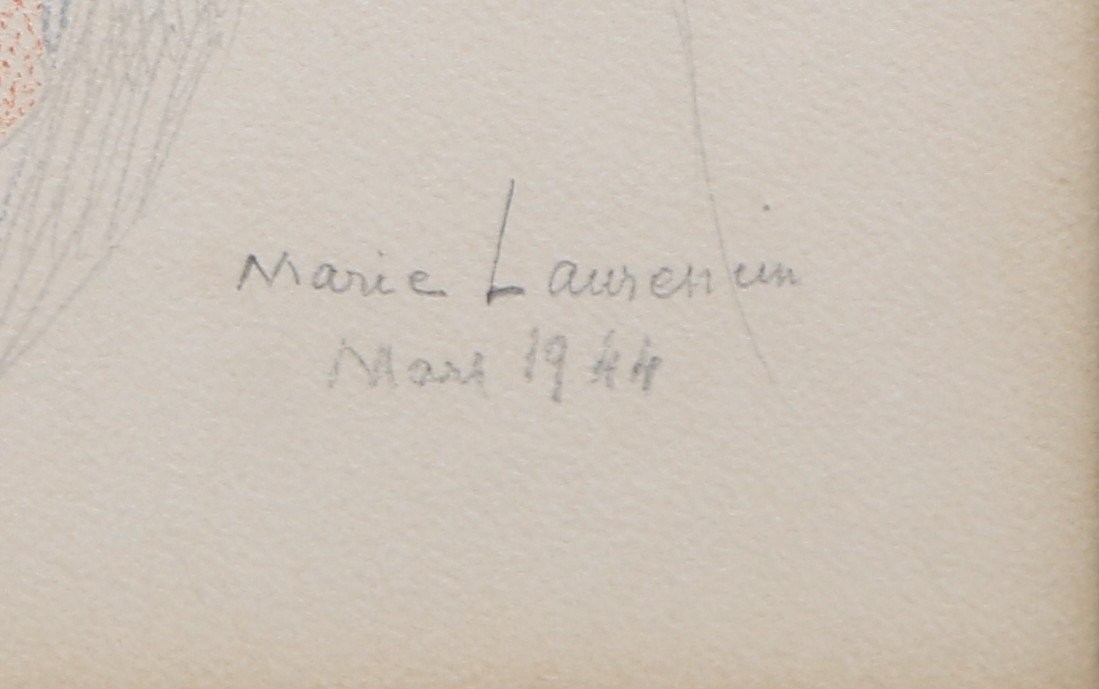 Marie Laurencin
Mars 1944